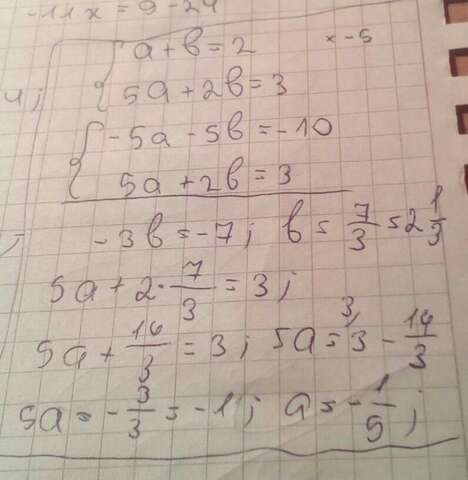 -11x = 9 - 24
4; a + b = 2 x -5
5a + 2b = 3
-5a - 5b = -10
5a + 2b = 3
-3b = -7; b = 7/3 = 2 1/3
5a + 2 · 7/3 = 3;
5a + 14/3 = 3; 5a = 3 - 14/3
5a = -3/3 = -1; a = -1/5;